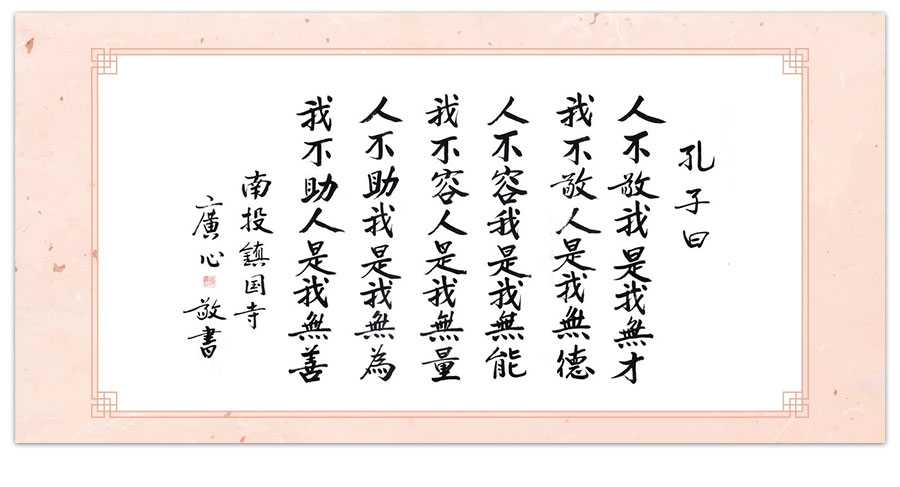 孔子曰
人不敬我是我無才
我不敬人是我無德
人不容我是我無能
我不容人是我無量
人不助我是我無為
我不助人是我無善
南投鎮国寺
广廣心敬書